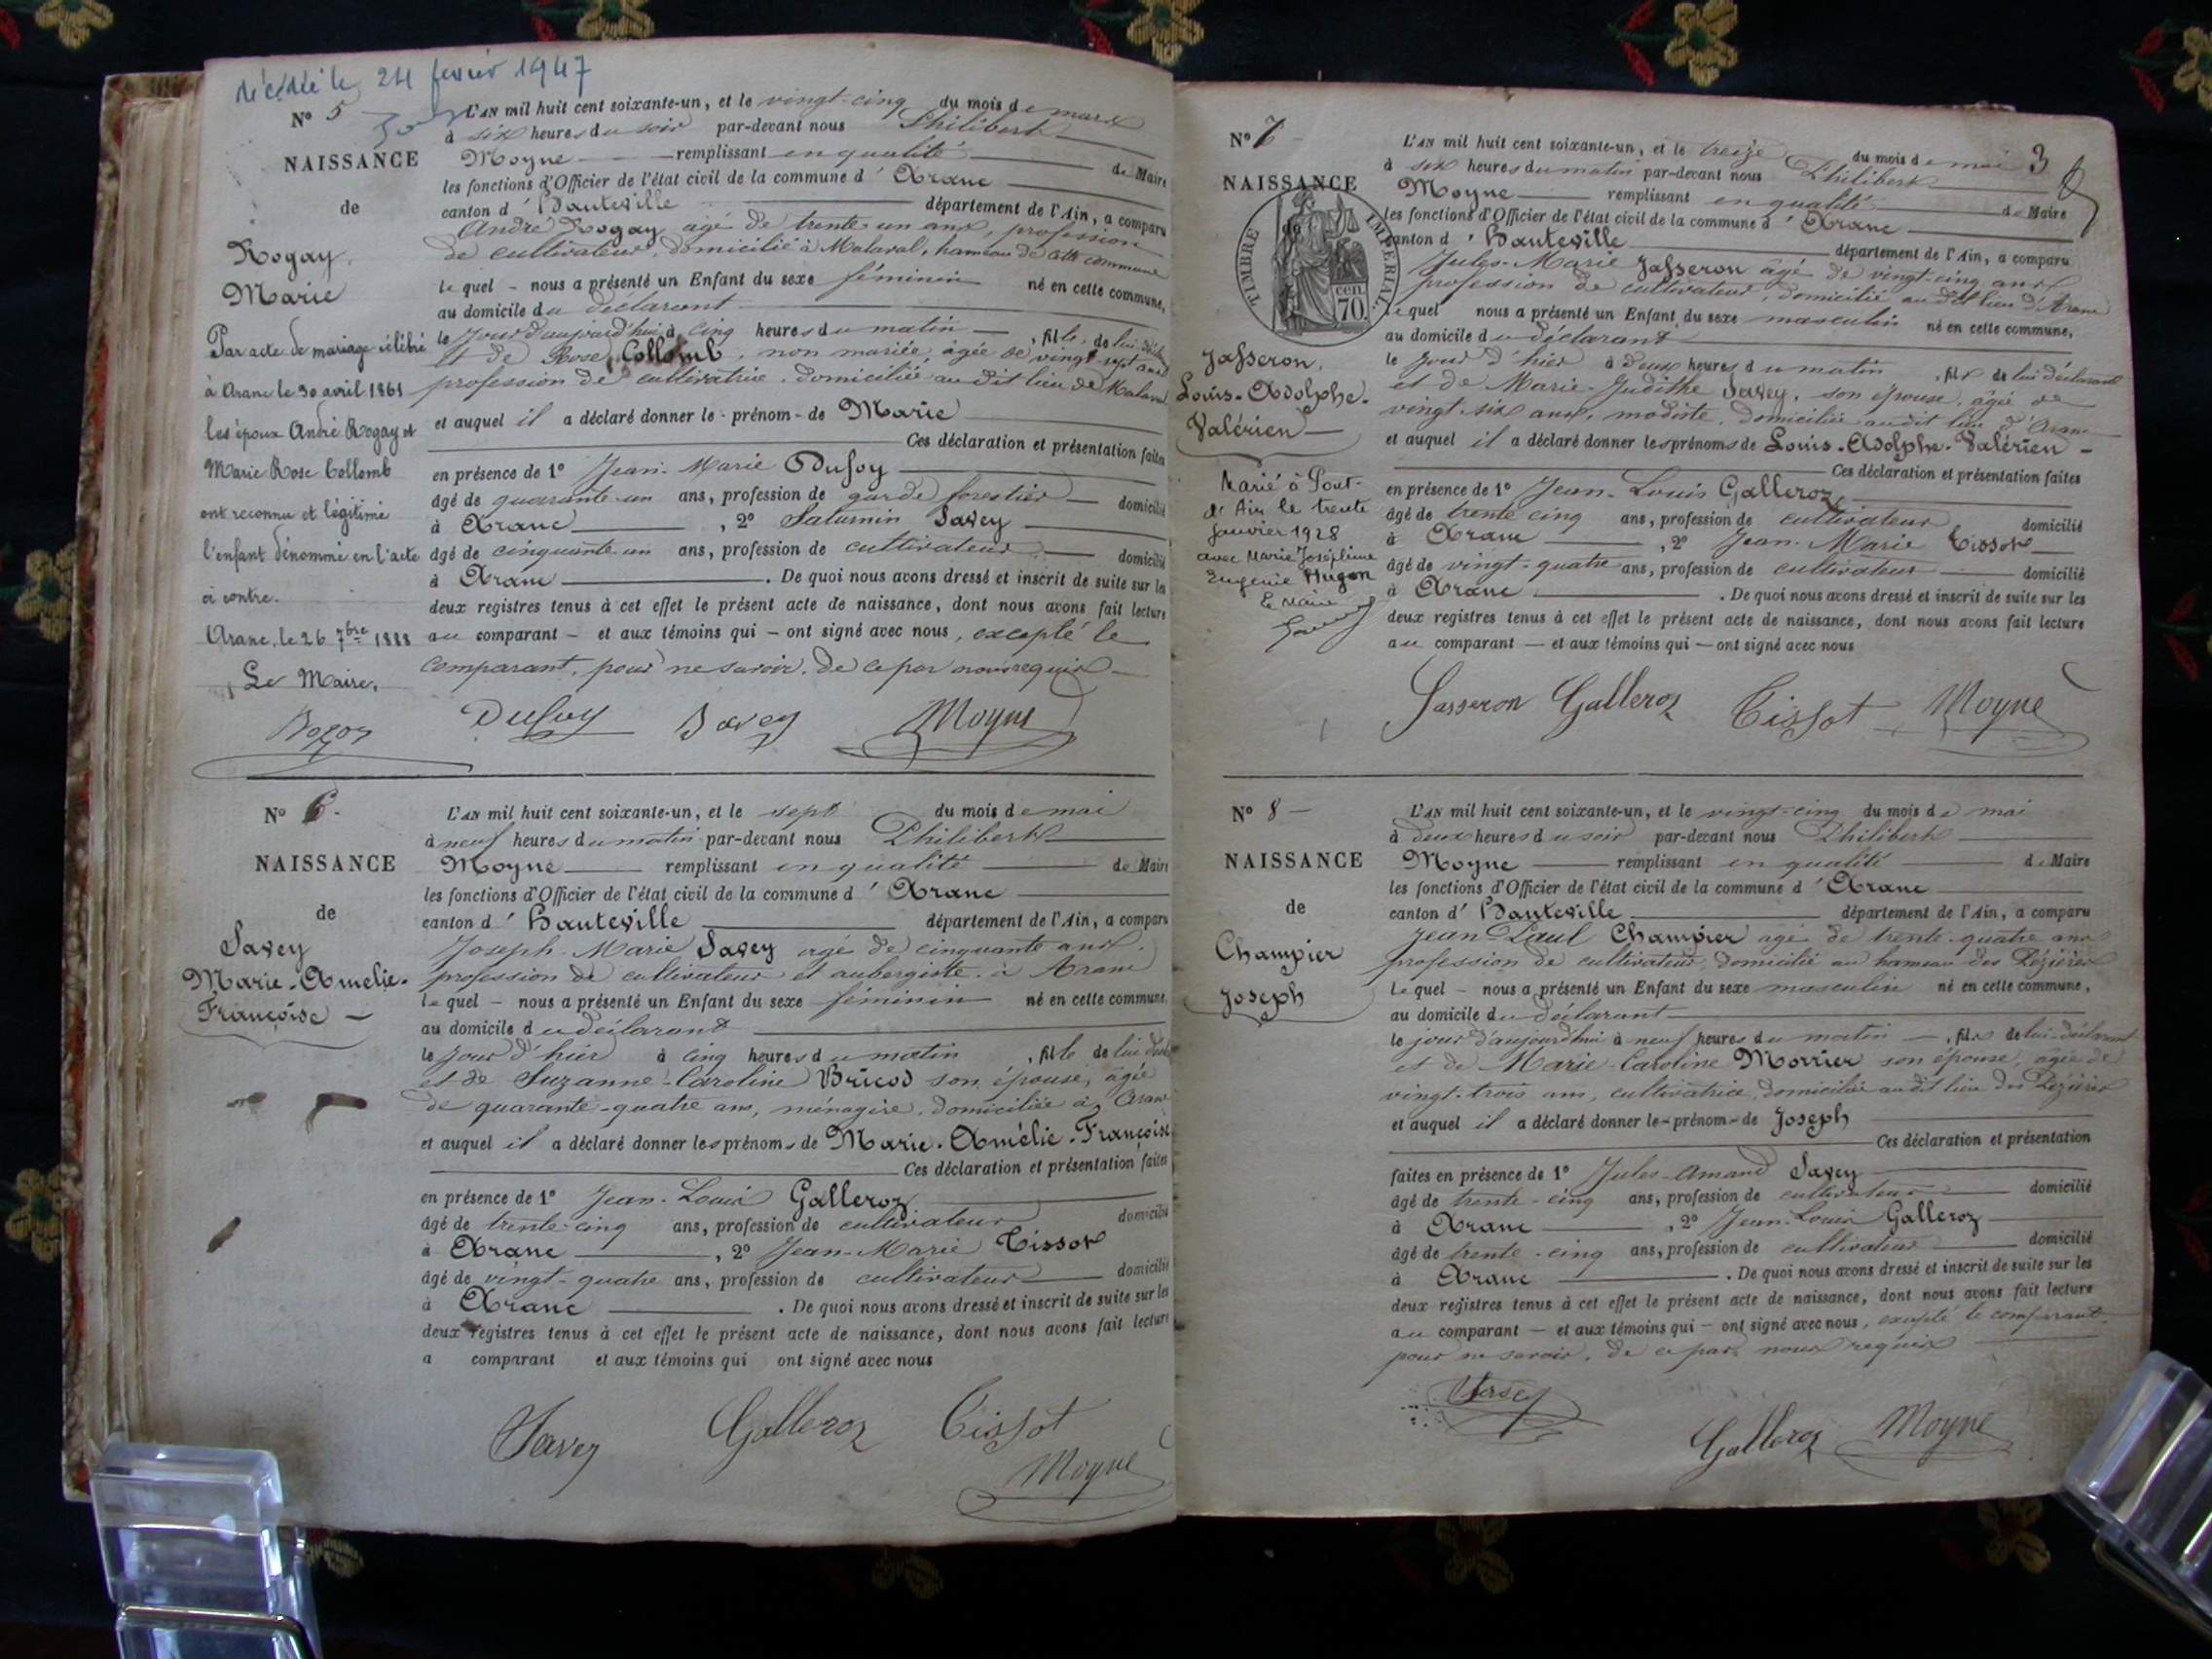 décédée le 24 fevrier 1947
N° 5
NAISSANCE
de
Rogay,
Marie
Par acte de mariage célébré
à Aranc le 30 avril 1861
les époux André Rogay et
Marie Rose Collomb
ont reconnu et légitimé
l'enfant dénommé en l'acte
ci contre.
Aranc, le 26 7bre 1888
Le Maire,
Bozon
L'AN mil huit cent soixante-un, et le vingt-cinq du mois de mars
à six heures du soir par-devant nous Philibert
Moyne remplissant en qualité de Maire
les fonctions d'Officier de l'état civil de la commune d'Aranc
canton d'Hauteville département de l'Ain, a comparu
André Rogay agé de trente un ans, profession
de cultivateur, domicilié à Malaval, hameau de cette commune
le quel - nous a présenté un Enfant du sexe féminin né en cette commune,
au domicile du déclarant
le jour d'aujourd'hui à cinq heures du matin, fille, de lui décla
et de Rose Collomb, non mariée, âgée de vingt-sept ans
profession de cultivatrice, domiciliée au dit lieu de Malaval
et auquel il a déclaré donner le - prénom - de Marie
Ces déclaration et présentation faites
en présence de 1° Jean-Marie Dufoy
âgé de quarante-un ans, profession de garde forestier domicilié
à Aranc, 2° Saturnin Savey
âgé de cinquante un ans, profession de cultivateur domicilié
à Aranc. De quoi nous avons dressé et inscrit de suite sur les
deux registres tenus à cet effet le présent acte de naissance, dont nous avons fait lecture
au comparant - et aux témoins qui - ont signé avec nous, excepté le
comparant, pour ne savoir, de ce par nous requis
Dufoy Savey Moyne
N° 6.
NAISSANCE
de
Savey
Marie-Amelie-
Françoise
L'AN mil huit cent soixante-un, et le sept du mois de mai
à neuf heures du matin par-devant nous Philibert
Moyne remplissant en qualité de Maire
les fonctions d'Officier de l'état civil de la commune d'Aranc
canton d'Hauteville département de l'Ain, a comparu
Joseph-Marie Savey agé de cinquante ans,
profession de cultivateur et aubergiste à Aranc
le quel - nous a présenté un Enfant du sexe féminin né en cette commune,
au domicile du déclarant
le jour d'hier à cinq heures du matin, fille de lui décl
et de Suzanne-Caroline Bricod son épouse, âgée
de quarante-quatre ans, ménagère, domiciliée à Aranc
et auquel il a déclaré donner les prénoms de Marie-Amélie-Françoise
Ces déclaration et présentation faites
en présence de 1° Jean-Louis Galleroz
âgé de trente-cinq ans, profession de cultivateur domicilié
à Aranc, 2° Jean-Marie Tissot
âgé de vingt-quatre ans, profession de cultivateur domicilié
à Aranc. De quoi nous avons dressé et inscrit de suite sur les
deux registres tenus à cet effet le présent acte de naissance, dont nous avons fait lecture
a comparant et aux témoins qui ont signé avec nous
Savey Galleroz Tissot
Moyne
3
N° 7
NAISSANCE
de
TIMBRE IMPERIAL
cen
70.
Jasseron,
Louis-Adolphe-
Valérien
Marié à Pont-
d'Ain le trente
Janvier 1928
avec Marie Joséphine
Eugenie Hugon
Le Maire
L'AN mil huit cent soixante-un, et le treize du mois de mai
à six heures du matin par-devant nous Philibert
Moyne remplissant en qualité de Maire
les fonctions d'Officier de l'état civil de la commune d'Aranc
canton d'Hauteville département de l'Ain, a comparu
Jules-Marie Jasseron âgé de vingt-cinq ans
profession de cultivateur, domicilié au dit lieu d'Aranc
le quel nous a présenté un Enfant du sexe masculin né en cette commune,
au domicile du déclarant
le jour d'hier à deux heures du matin, fils de lui déclarant
et de Marie-Judithe Savey, son épouse, âgée de
vingt-six ans, modiste, domiciliée au dit lieu d'Aranc
et auquel il a déclaré donner les prénoms de Louis-Adolphe-Valérien -
Ces déclaration et présentation faites
en présence de 1° Jean-Louis Galleroz
âgé de trente cinq ans, profession de cultivateur domicilié
à Aranc, 2° Jean-Marie Tissot
âgé de vingt-quatre ans, profession de cultivateur domicilié
à Aranc. De quoi nous avons dressé et inscrit de suite sur les
deux registres tenus à cet effet le présent acte de naissance, dont nous avons fait lecture
au comparant - et aux témoins qui - ont signé avec nous
Jasseron Galleroz Tissot Moyne
N° 8
NAISSANCE
de
Champier
Joseph
L'AN mil huit cent soixante-un, et le vingt-cinq du mois de mai
à deux heures du soir par-devant nous Philibert
Moyne remplissant en qualité de Maire
les fonctions d'Officier de l'état civil de la commune d'Aranc
canton d'Hauteville département de l'Ain, a comparu
Jean Paul Champier agé de trente-quatre ans
profession de cultivateur, domicilié au hameau des Pézières
le quel - nous a présenté un Enfant du sexe masculin né en cette commune,
au domicile du déclarant
le jour d'aujourd'hui à neuf heures du matin, fils de lui déclarant
et de Marie-Caroline Morrier son épouse, agée de
vingt-trois ans, cultivatrice, domiciliée au dit lieu des Pézières
et auquel il a déclaré donner le - prénom - de Joseph
Ces déclaration et présentation
faites en présence de 1° Jules-Amand Savey
âgé de trente-cinq ans, profession de cultivateur domicilié
à Aranc, 2° Jean-Louis Galleroz
âgé de trente-cinq ans, profession de cultivateur domicilié
à Aranc. De quoi nous avons dressé et inscrit de suite sur les
deux registres tenus à cet effet le présent acte de naissance, dont nous avons fait lecture
au comparant - et aux témoins qui - ont signé avec nous, excepté le comparant
pour ne savoir, de ce par nous requis
Savey
Galleroz Moyne